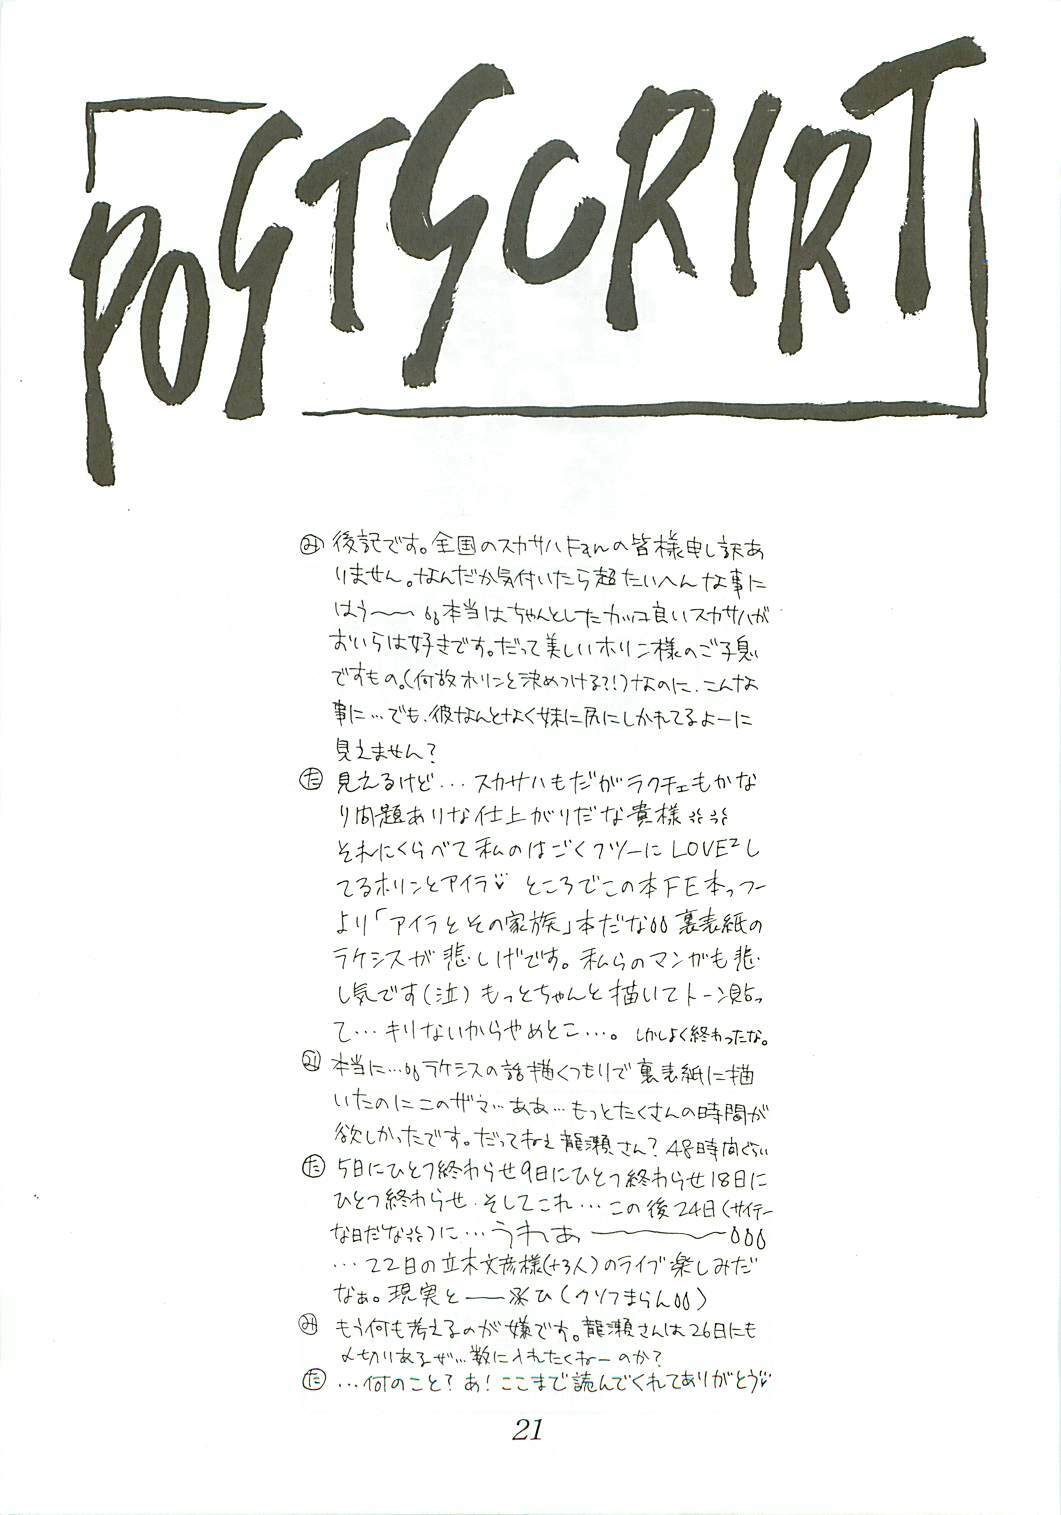 POSTSCRIPT
み 後記です。全国のスカサハFanの皆様申し訳あ
りません。なんだか気付いたら超たいへんな事に
はう〜〜 本当はちゃんとしたカッコ良いスカサハが
おいらは好きです。だって美しいホリン様のご子息
ですもの。(何故ホリンと決めつける?!)なのに、こんな
事に…でも、彼なんとなく妹に尻にしかれてるよーに
見えません?
た 見えるけど・・・スカサハもだがラクチェもかな
り問題ありな仕上がりだな貴様
それにくらべて私のはごくフツーにLOVE²し
てるホリンとアイラ♡ ところでこの本FE本っつー
より「アイラとその家族」本だな 裏表紙の
ラケシスが悲しげです。私らのマンガも悲
し気です(泣)もっとちゃんと描いてトーン貼っ
て…キリないからやめとこ…。しかしよく終わったな。
み 本当に…ラケシスの話描くつもりで裏表紙に描
いたのにこのザマ…ああ…もっとたくさんの時間が
欲しかったです。だってねえ龍瀬さん?48時間ぐらい
た 5日にひとつ終わらせ9日にひとつ終わらせ18日に
ひとつ終わらせ、そしてこれ…この後24日(サイテー
な日だな)に…うわあ〜〜〜
…22日の立木文彦様(+3人)のライブ楽しみだ
なぁ。現実と――ひ(クソつまらん)
み もう何も考えるのが嫌です。龍瀬さんは26日にも
〆切りあるぜ…数に入れたくねーのか?
た …何のこと?あ!ここまで読んでくれてありがとう♡
21